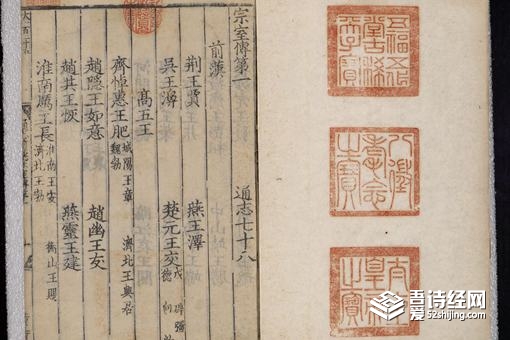 五福五代堂古稀天子寶
八徵耄念之寶
太上皇帝之寶
宗室傳第一 通志七十八
前漢
荆王賈 燕王澤
吳王濞 楚元王交 戊 辟彊 德 向
高五王
齊悼惠王肥 城陽王章 魏勃 濟北王興居
趙隱王如意 趙幽王友
趙共王恢 燕靈王建
淮南厲王長 淮南王安 濟北王勃 衡山王賜
吾诗经网
52shijing.com